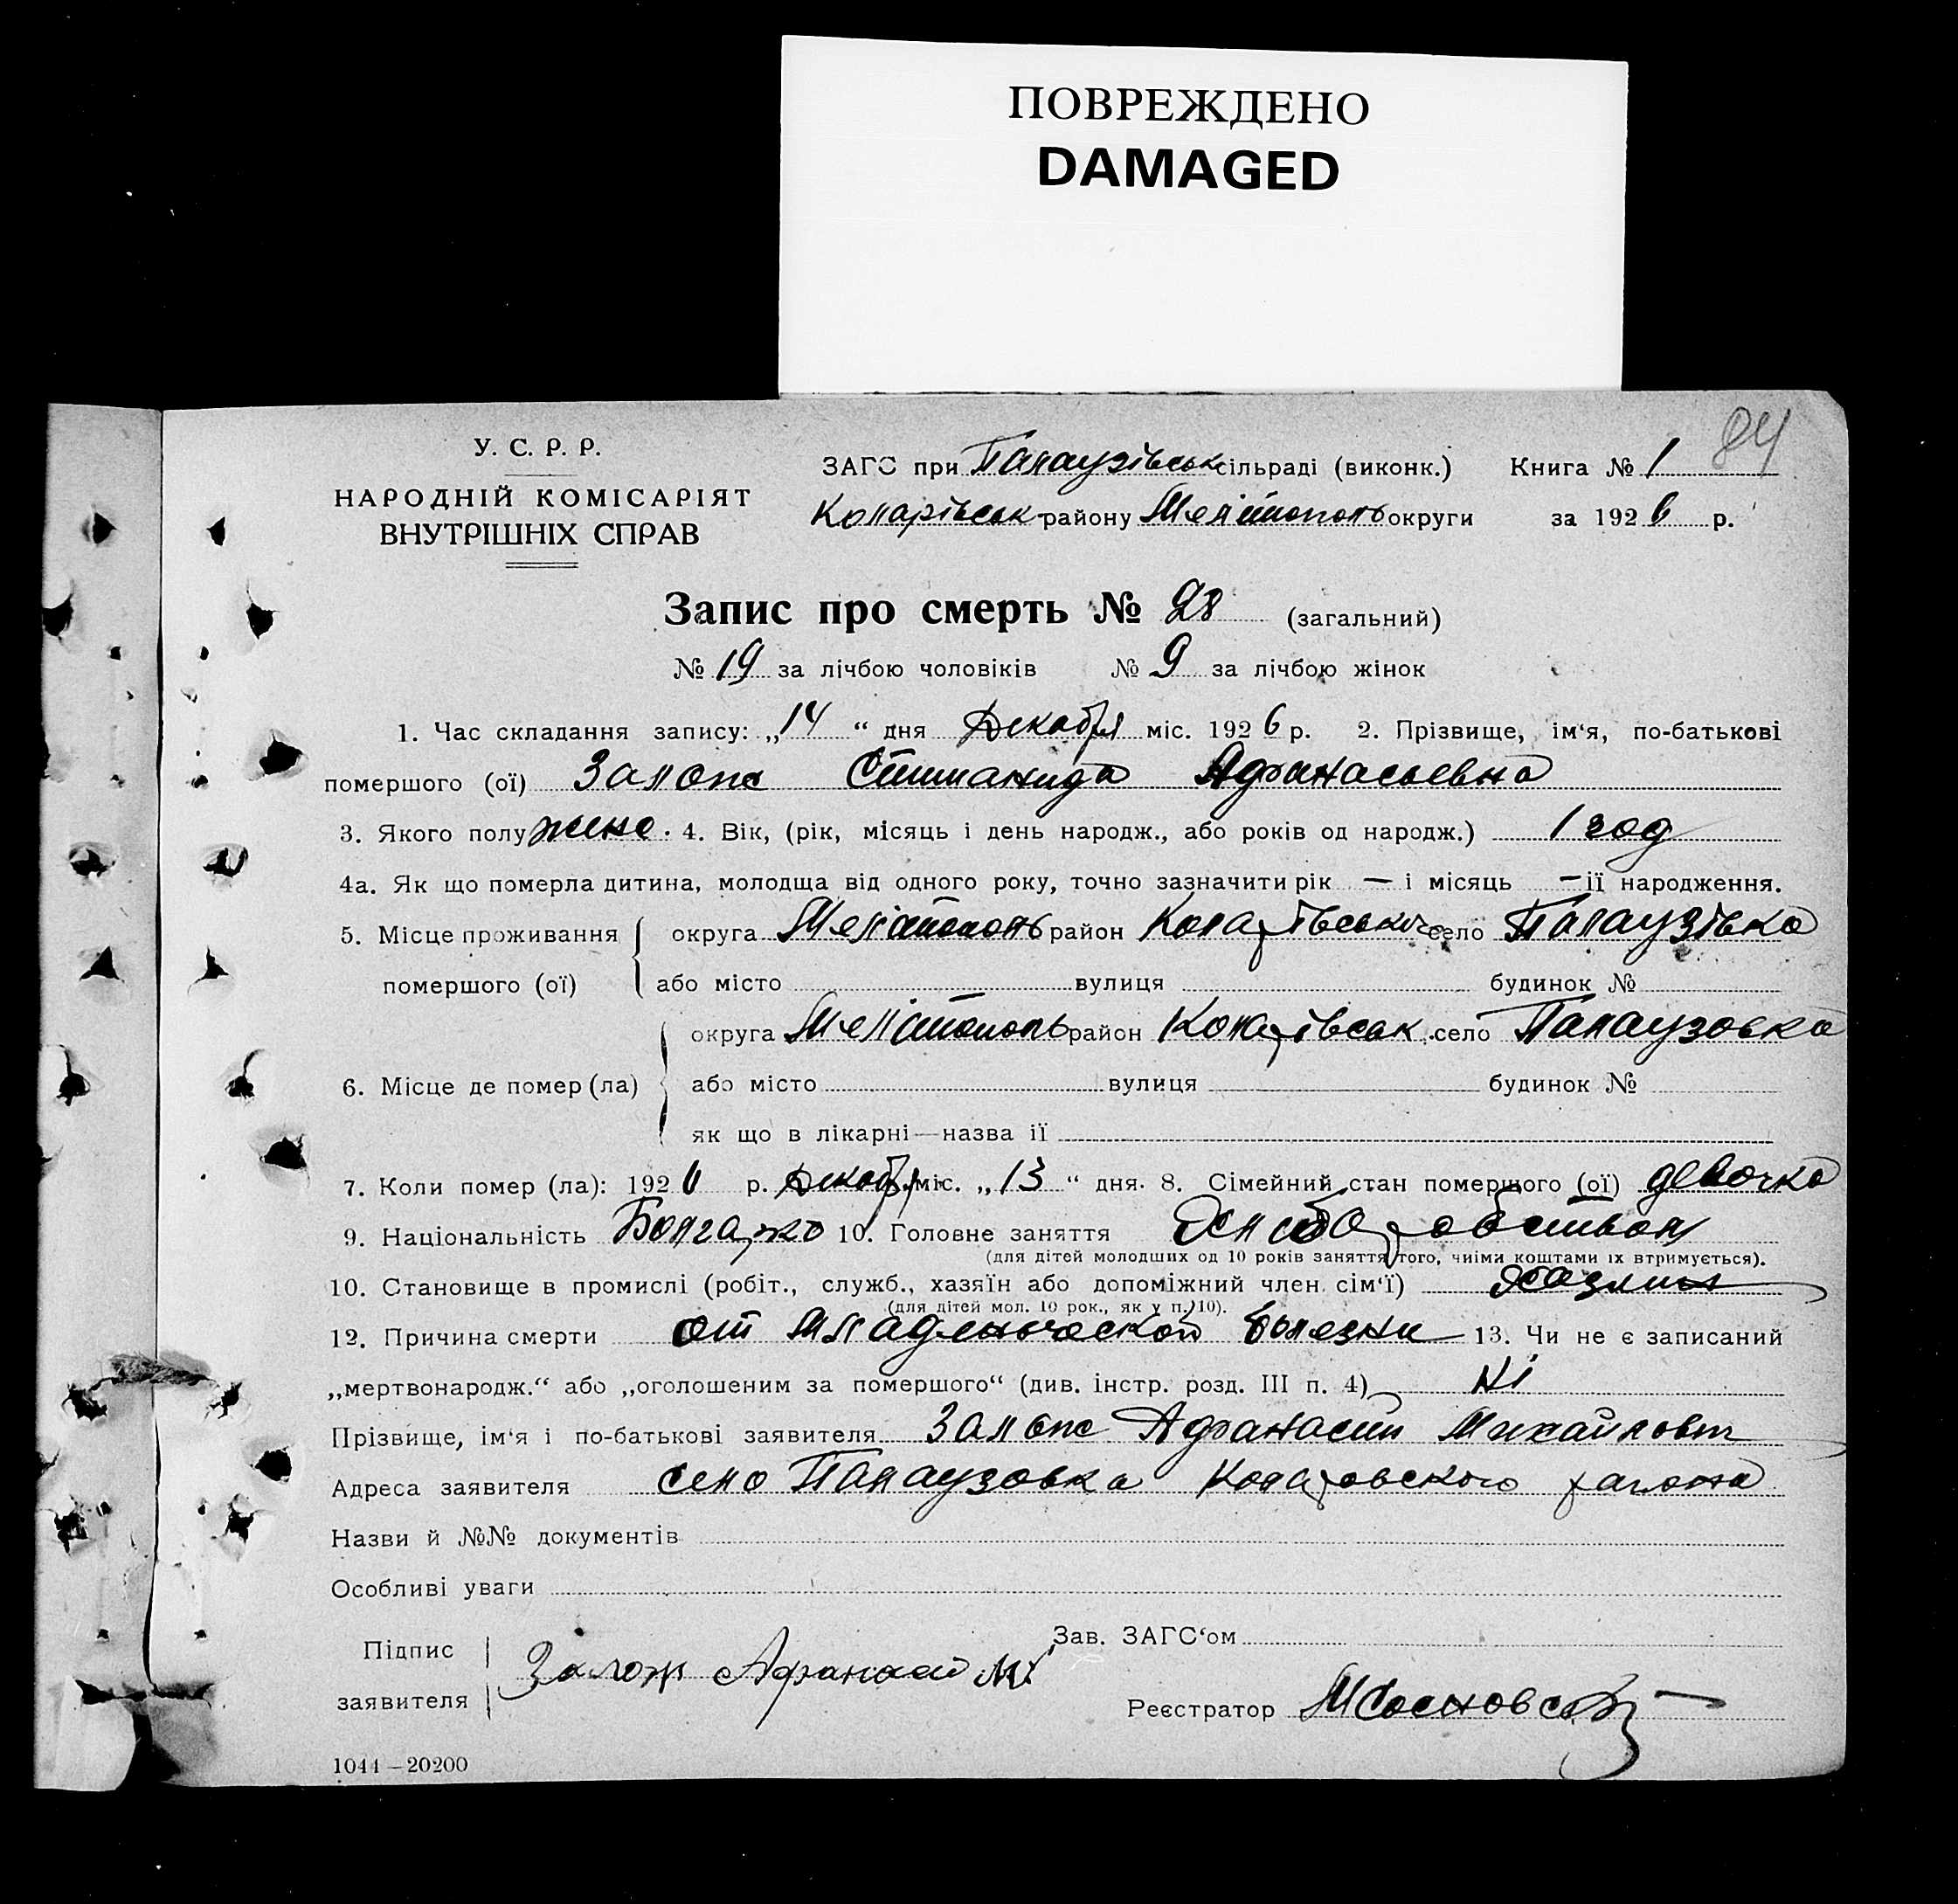 ПОВРЕЖДЕНО
DAMAGED
84
У. С. Р. Р.
НАРОДНІЙ КОМІСАРІЯТ
ВНУТРІШНІХ СПРАВ
ЗАГС при Папаузівськ сільраді (виконк.) Книга № 1
Коларівськ району Мелітополь округи за 1926 р.
Запис про смерть № 28 (загальний)
№ 19 за лічбою чоловіків № 9 за лічбою жінок
1. Час складання запису: „14“ дня Декабря міс. 1926 р. 2. Прізвище, ім‘я, по-батькові
помершого (ої) Афанасьевна
3. Якого полу 4. Вік, (рік, місяць і день народж., або років од народж.) 1 год
4а. Як що померла дитина, молодща від одного року, точно зазначити рік — і місяць — ії народження.
5. Місце проживання помершого (ої) округа Мелітополь район село
або місто вулиця будинок №
6. Місце де помер (ла) округа Мелітополь район Коларівськ. село
або місто вулиця будинок №
як що в лікарні—назва ії
7. Коли помер (ла): 1926 р. Декабр. міс. „13“ дня. 8. Сімейний стан помершого (ої) девочка
9. Національність Болгарка 10. Головне заняття
(для дітей молодших од 10 років заняття того, чиіми коштами іх втримується).
10. Становище в промислі (робіт., служб., хазяїн або допоміжний член сім‘ї) Хазяин
(для дітей мол. 10 рок., як у п. 10).
12. Причина смерти от Младенческой болезни 13. Чи не є записаний
„мертвонародж.“ або „оголошеним за помершого“ (див. інстр. розд. III п. 4) Ні
Прізвище, ім‘я і по-батькові заявителя Афанасий Михайлович
Адреса заявителя село Коларовского района
Назви й №№ документів
Особливі уваги
Підпис заявителя Афанасий М.
Зав. ЗАГС‘ом
Реєстратор
1044—20200